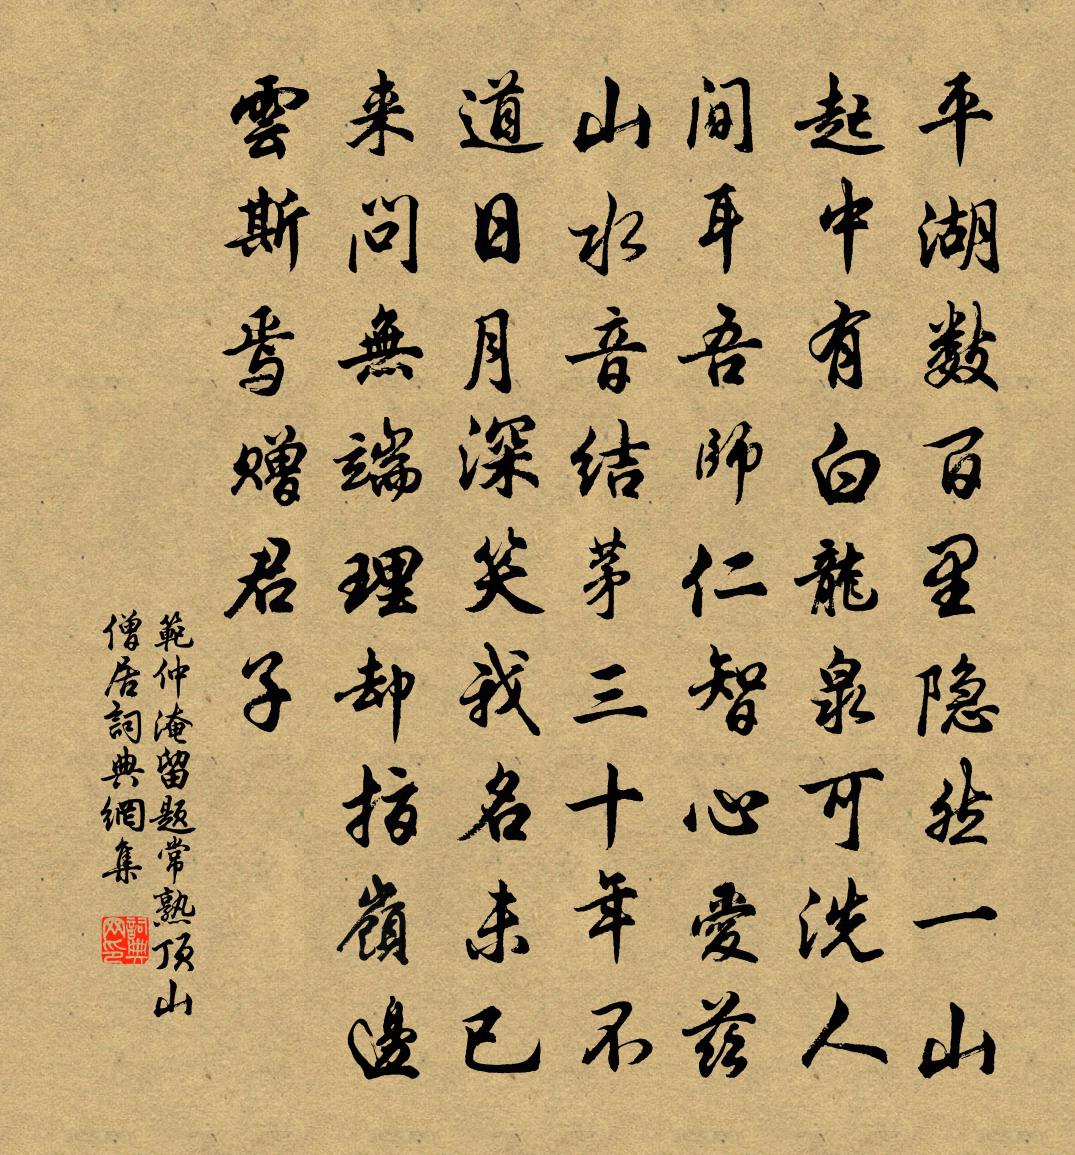 平湖数百里隐然一山
起中有白龍泉可洗人
间耳吾師仁智心愛兹
山水音结茅三十年不
道日月深笑我名未已
来問無端理却指嶺邊
雲斯焉赠君子
範仲淹留题常熟頂山
僧居詞典網集
詞典网印